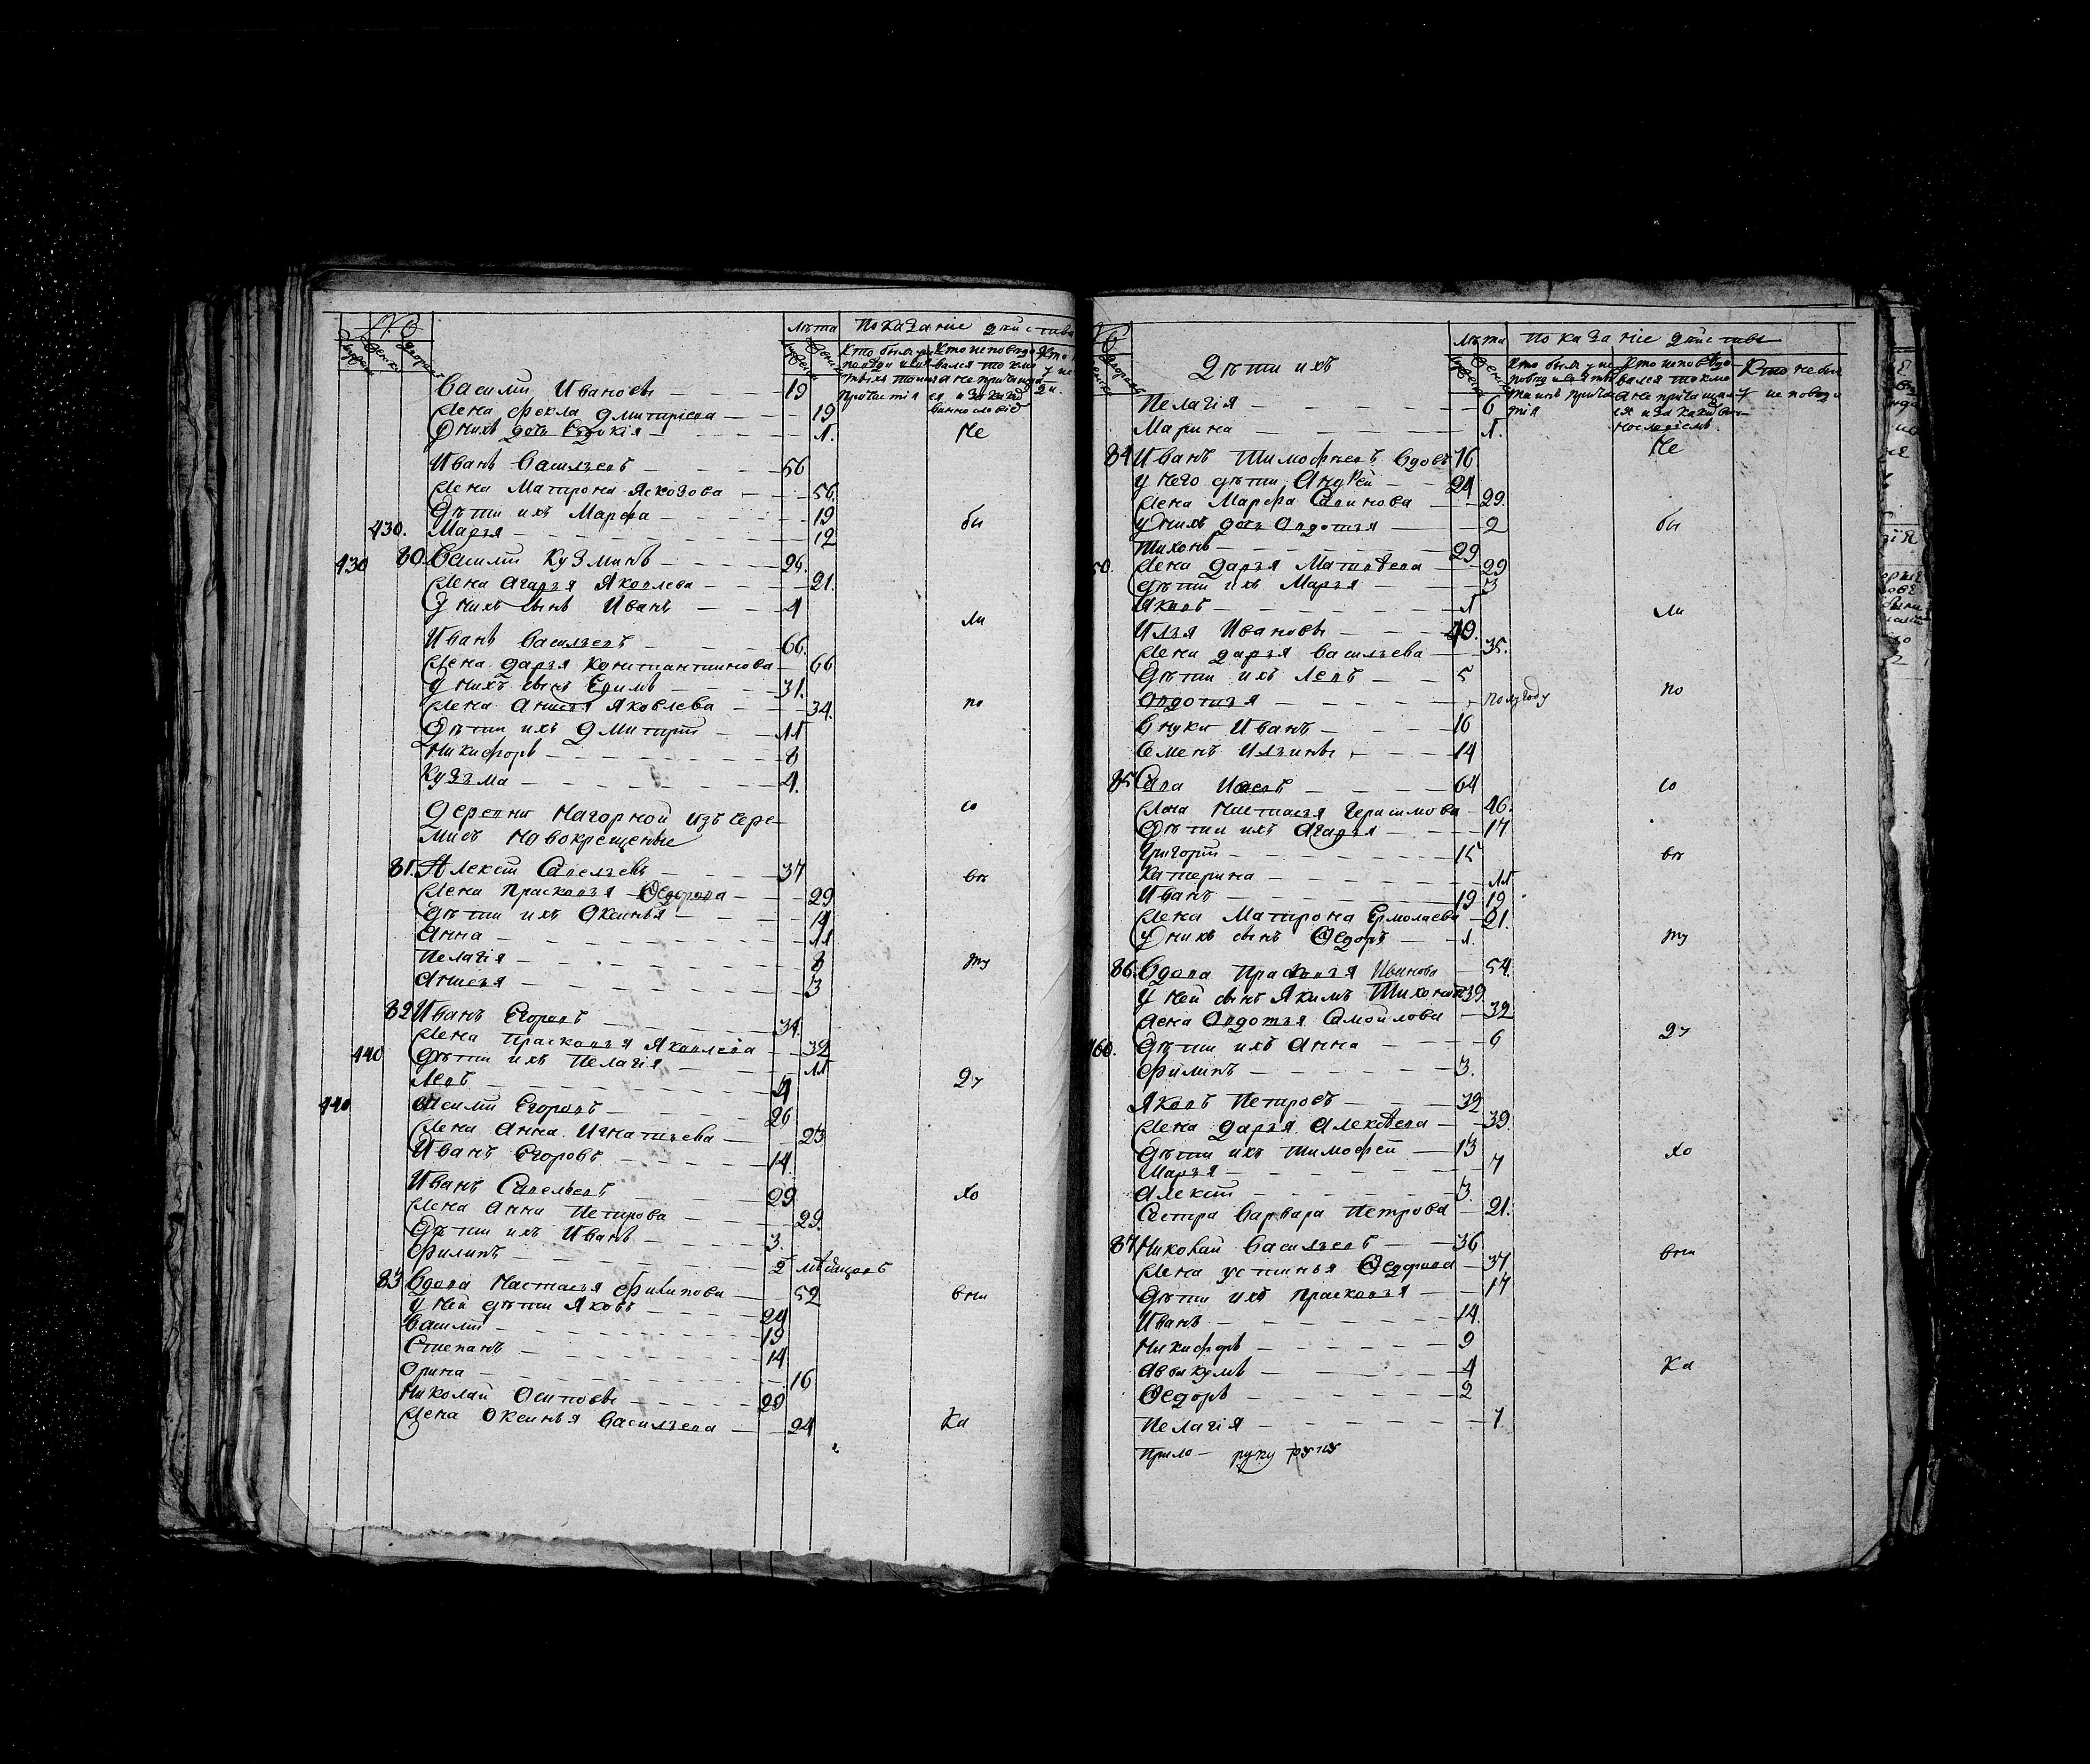 №
лѣта
показание действа
Василий Ивановъ 19
Жена Фекла Дмитріева 19
У нихъ дочь Евдокія 1.
не
Иванъ Васильевъ 56
Жена Матрона Яковова 56.
Дѣти ихъ Марфа 19
бы
430. Марья 12
430 80. Василий Кузминъ 26.
Жена Агафья Яковлева 21.
У нихъ сынъ Иванъ 4
ли
Иванъ Васильевъ 66.
Жена Дарья Константинова 66
У нихъ сынъ Ефимъ 31.
Жена Анисья Яковлева 34.
по
Дѣти ихъ Дмитрий 11
Никифоръ 8
Кузьма 4.
Деревни Нагорной изъ Чере-
со
мисъ новокрещеные
81. Алексей Савельевъ 37
вѣ
Жена Прасковья Ѳедорова 29
Дѣти ихъ Оксинья 14
Анна 11
Пелагія 8
ту
Анисья 3
82 Иванъ Егоровъ 34.
Жена Прасковья Яковлева 32
440 Дѣти ихъ Пелагія 11
Левъ 4
ду
440 Василий Егоровъ 26
Жена Анна Игнатьева 23
Иванъ Егоровъ 14.
Иванъ Савельевъ 29
хо
Жена Анна Петрова 29.
Дѣти ихъ Иванъ 3.
Филипъ 2 мѣсяцовъ
83 Вдова Настасья Филипова 52
вни
У ней дѣти Яковъ 24
Василий 19
Степанъ 14
Орина 16
Николай Осиповъ 29
Жена Оксинья Васильева 24
ка
лѣта
показание действа
Дѣти ихъ
Пелагія 6
Марина 1.
не
84 Иванъ Тимофеевъ вдовъ 76
У него дѣти Андрей 24
Жена Марфа Савинова 29.
У нихъ дочь Овдотья 2
бы
Тихонъ 29
Жена Дарья Матвеева 29
Дѣти ихъ Марья 3
Яковъ 1
ли
Илья Ивановъ 40.
Жена Дарья Васильева 35.
Дѣти ихъ Левъ 5
Овдотья полугоду
по
Внуки Иванъ 16
Семенъ Ильинъ 14
85 Сава Исаевъ 64
со
Жена Настасья Герасимова 46.
Дѣти ихъ Агафья 17
Григорий 15
вѣ
Катерина 11
Иванъ 19 19
Жена Матрона Ермолаева 21.
У нихъ сынъ Ѳедоръ 1.
ту
86. Вдова Прасковья Иванова 54.
У ней сынъ Якимъ Тихоновъ 39
Жена Овдотья Самойлова 32
ду
460. Дѣти ихъ Анна 6
Филипъ 3.
Яковъ Петровъ 32
Жена Дарья Алексеева 39.
Дѣти ихъ Тимофей 13
хо
Марья 7
Алексей 3.
Сестра Варвара Петрова 21.
87 Николай Васильевъ 36
вни
Жена Устинья Ѳедорова 37
Дѣти ихъ Прасковья 17
Иванъ 14.
Никифоръ 9
Аввакумъ 4
ка
Ѳедоръ 2
Пелагія 7